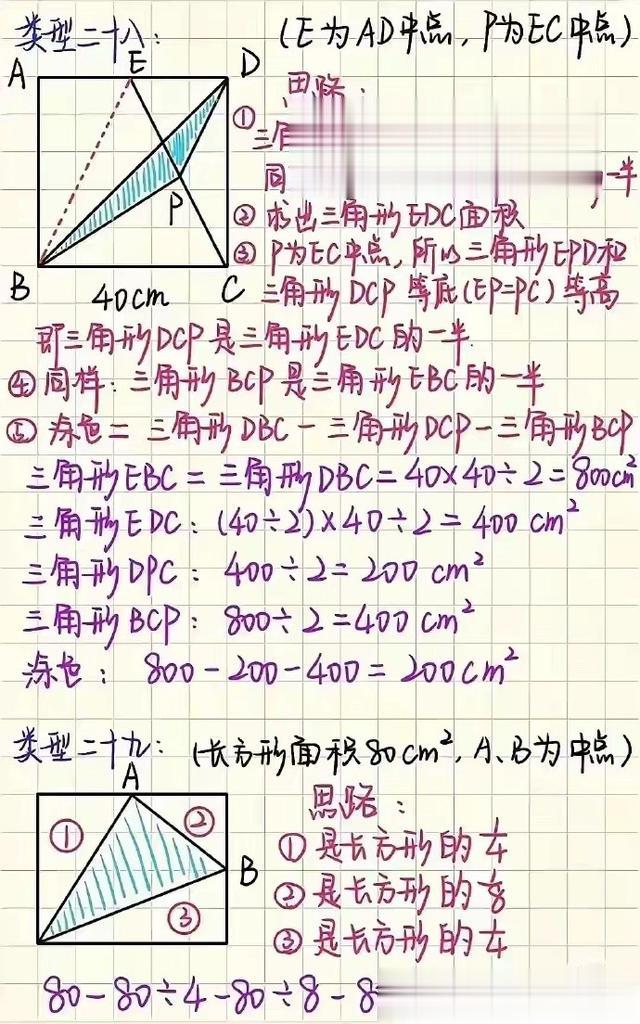 类型二十八：（E为AD中点，P为EC中点）
A E D
思路：
① 三角
同
，一半
② 求出三角形EDC面积
P
③ P为EC中点，所以三角形EPD和
B 40cm C 三角形DCP等底（EP=PC）等高
即三角形DCP是三角形EDC的一半.
④ 同样：三角形BCP是三角形EBC的一半
⑤ 涂色＝三角形DBC－三角形DCP－三角形BCP
三角形EBC＝三角形DBC＝40×40÷2＝800cm²
三角形EDC：(40÷2)×40÷2＝400 cm²
三角形DPC：400÷2＝200 cm²
三角形BCP：800÷2＝400 cm²
涂色：800－200－400＝200cm²
类型二十九：（长方形面积80cm²，A、B为中点）
A
思路：
① ② ① 是长方形的1/4
B ② 是长方形的1/8
③ ③ 是长方形的1/4
80－80÷4－80÷8－8